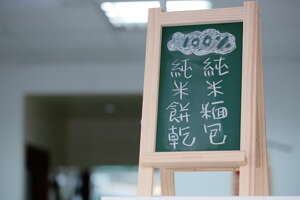 100%
純米麵包
純米餅乾